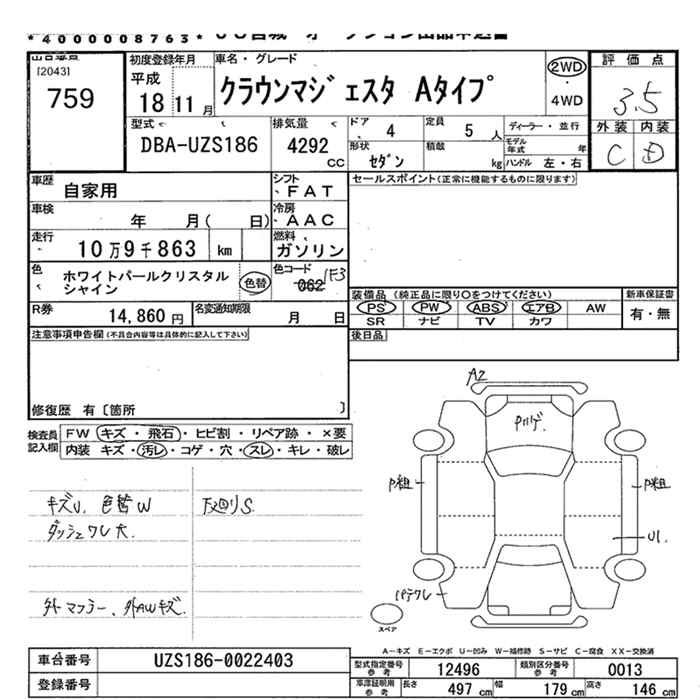 *4000008763*
[2043]
759
初度登録年月
平成
18 11 月
車名・グレード
クラウンマジェスタ Aタイプ
2WD
・
4WD
評価点
3.5
外装 内装
C D
型式
DBA-UZS186
排気量
4292 CC
ドア 4
定員 5 人
ディーラー・並行
形状 セダン
積載 kg
モデル年式 年
ハンドル 左・右
車歴 自家用
シフト FAT
セールスポイント(正常に機能するものに限ります)
車検 年 月( 日)
冷房 AAC
走行 10万9千863 km
燃料 ガソリン
色 ホワイトパールクリスタル
シャイン
色替
色コード
062 1F3
装備品(純正品に限り〇をつけてください)
新車保証書
PS PW ABS エアB AW
有・無
SR ナビ TV カワ
R券 14,860 円
名変通知期限 月 日
注意事項申告欄(不具合内容等は具体的に記入して下さい)
後日品
修復歴 有〔箇所 〕
検査員
記入欄
FW キズ・飛石・ヒビ割・リペア跡・×要
内装 キズ・汚レ・コゲ・穴・スレ・キレ・破レ
キズU、色替W
ダッシュワレ大
下廻りS
外マフラー、外AWキズ
A2
Pハゲ
P粗
P粗
U1
パテワレ
スペア
A-キズ E-エクボ U-凹み W-補修跡 S-サビ C-腐食 XX-交換済
車台番号 UZS186-0022403
登録番号
型式指定番号
参考
12496
類別区分番号
参考
0013
車庫証明用
参考
長さ 497 cm
幅 179 cm
高さ 146 cm